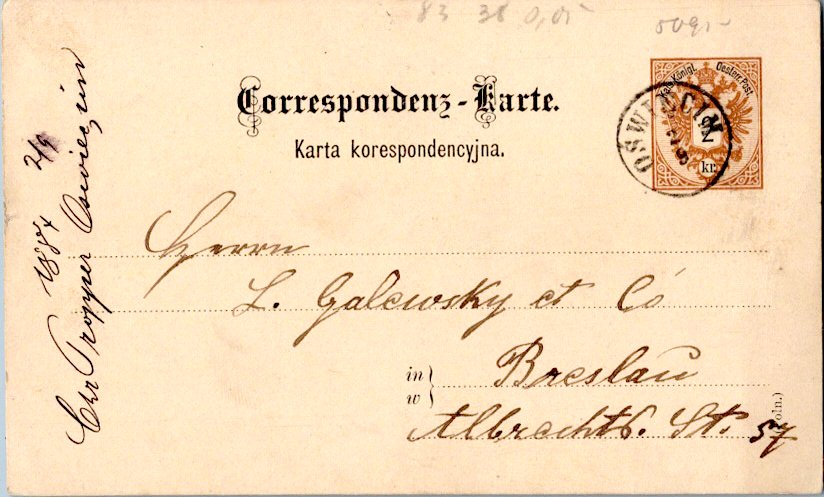 83 38 0,05
50gr-
Kais. Königl. Oesterr. Post.
Correspondenz-Karte.
Karta korespondencyjna.
OŚWIĘCIM
2
kr.
Herrn
L. Galewsky et Co
in
w
Breslau
Albrechts. St. 57
Propper Oswieczim
1884 2/9